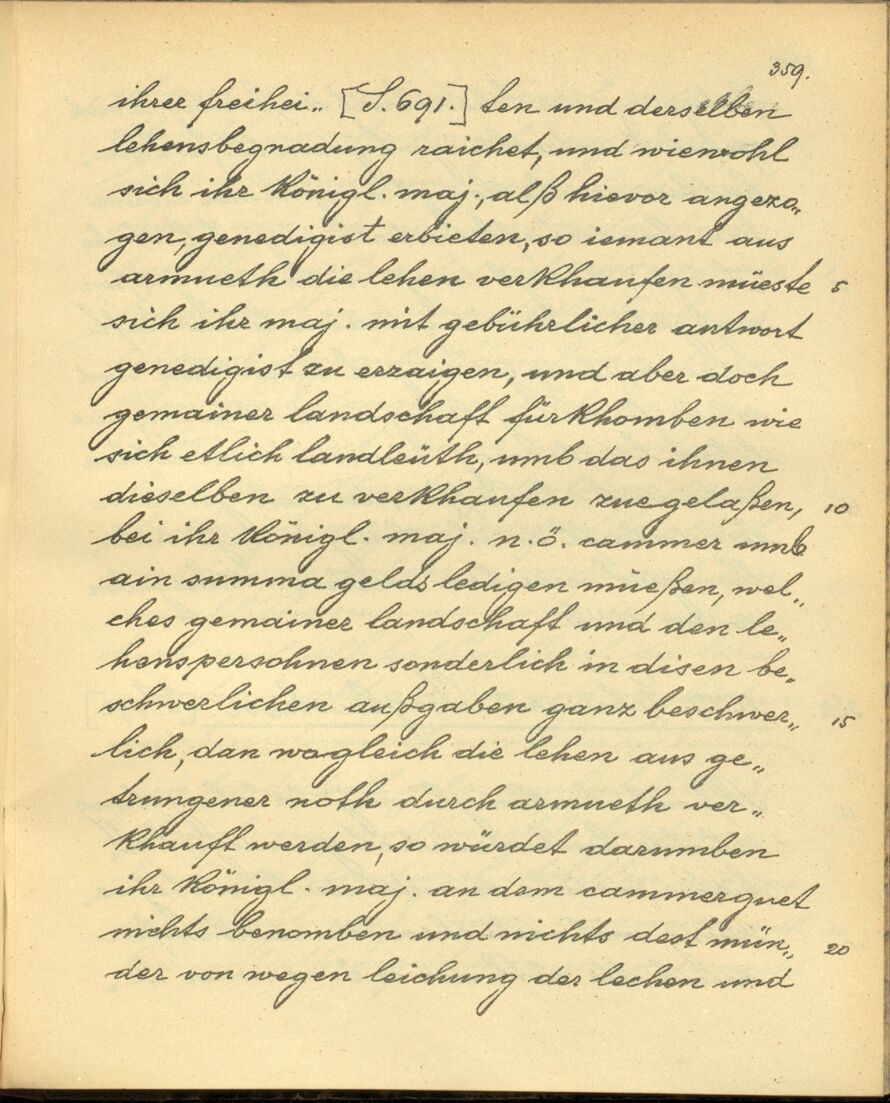 359.
ihrer freihei„ [S. 691.] ten und derselben
lehensbegnadung raichet, und wiewohl
sich ihr königl. maj., alß hievor angezo„
gen, genedigist erbieten, so iemant aus
armueth die lehen verkhaufen müeste 5
sich ihr maj. mit gebührlicher antwort
genedigist zu erzaigen, und aber doch
gemainer landschaft fürkhomben wie
sich etlich landleüth, umb das ihnen
dieselben zu verkhaufen zuegelaßen, 10
bei ihr königl. maj. n. ö. cammer umb
ain summa gelds ledigen müeßen, wel„
ches gemainer landschaft und den le„
henspersohnen sonderlich in disen be„
schwerlichen außgaben ganz beschwer„ 15
lich, dan wo gleich die lehen aus ge„
trungener noth durch armueth ver„
khauft werden, so würdet darumben
ihr königl. maj. an dem cammerguet
nichts benomben und nichts dest mün„ 20
der von wegen leichung der lechen und